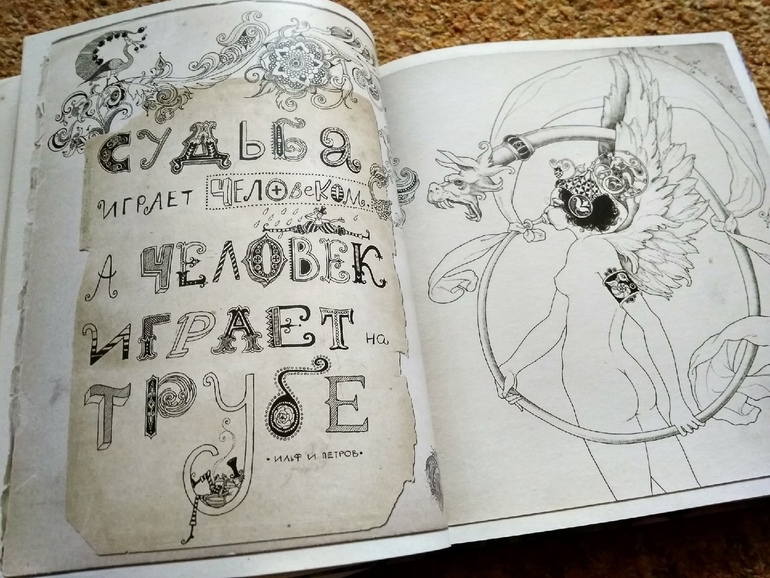 СУДЬБА
ИГРАЕТ ЧЕЛОВЕКОМ,
А ЧЕЛОВЕК
ИГРАЕТ на
ТРУБЕ
• ИЛФ И ПЕТРОВ •